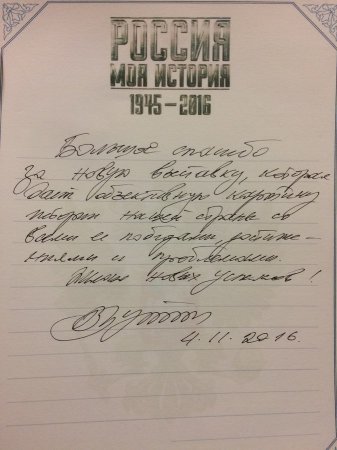 РОССИЯ
МОЯ ИСТОРИЯ
1945–2016
Большое спасибо
за новую выставку, которая
дает объективную картину
истории нашей страны со
всеми ее победами, достиже-
ниями и проблемами.
Желаю новых успехов!
4.11.2016.